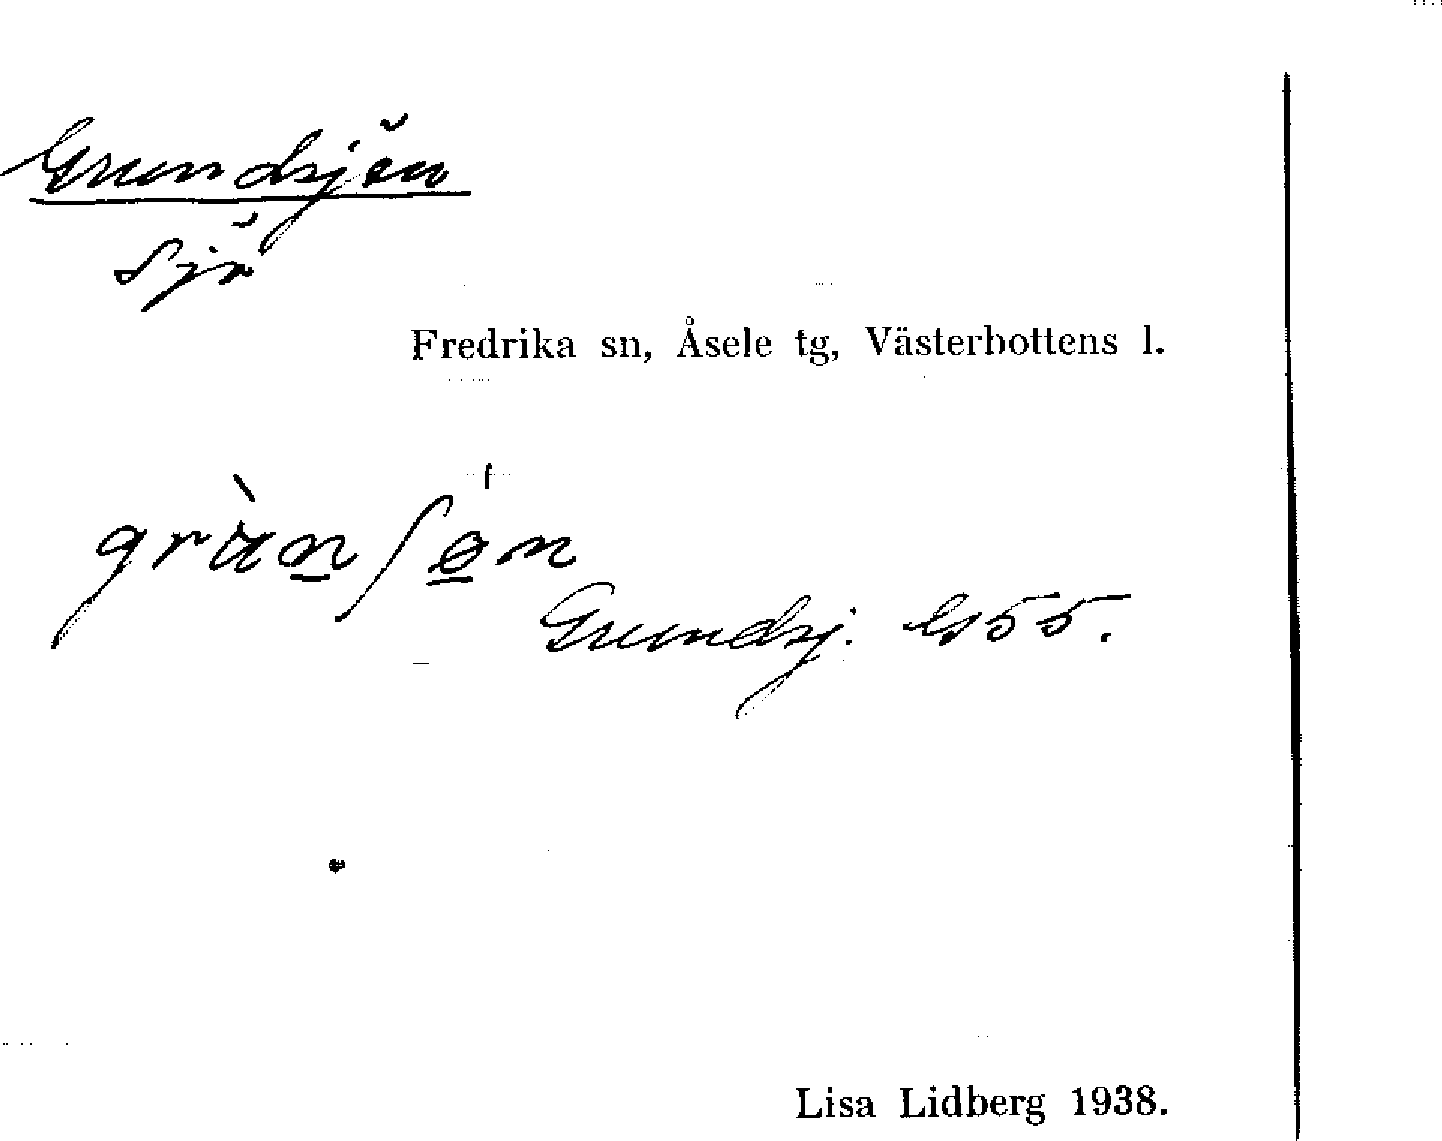 Grundsjön
sjö
Fredrika sn, Åsele tg, Västerbottens l.
Grundsj. 55.
Lisa Lidberg 1938.